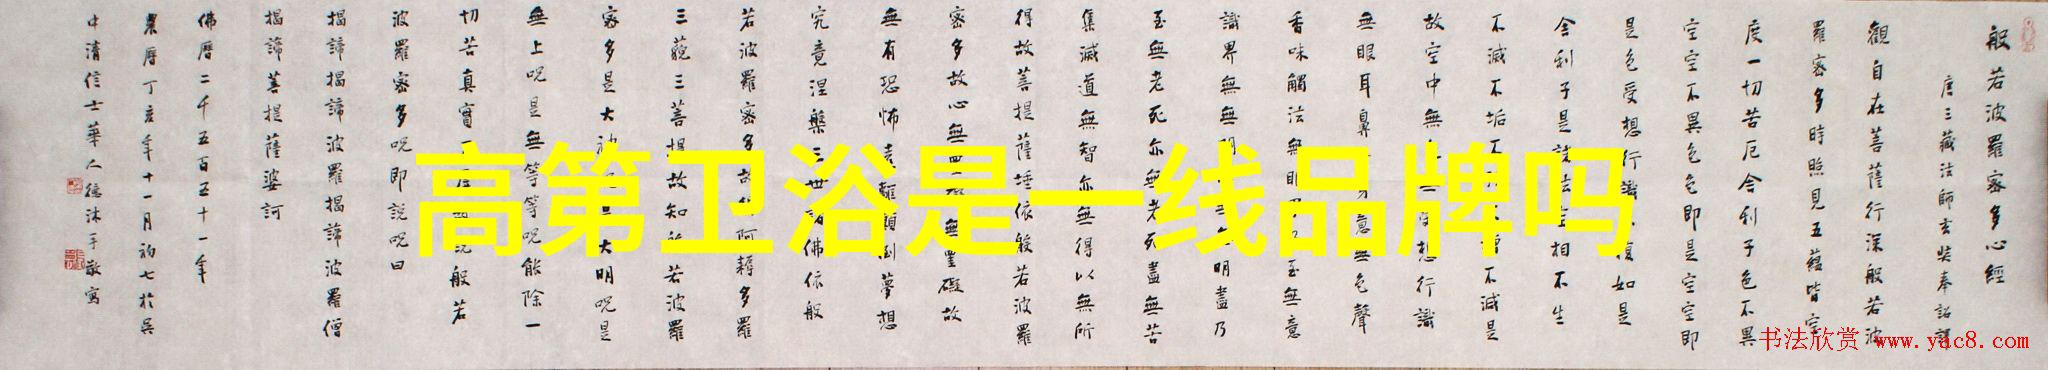 般若波羅密多心經
唐三藏法師玄奘奉詔譯
觀自在菩薩行深般若波
羅密多時照見五蘊皆空
度一切苦厄舍利子色不異
空空不異色色即是空空即
是色受想行識 復如是
舍利子是諸法空相不生
不滅不垢不 增不減是
故空中無 受想行識
無眼耳鼻 身意無色聲
香味觸法無眼界 至無意
識界無無明 無明盡乃
至無老死亦無老死盡無苦
集滅道無智亦無得以無所
得故菩提薩埵依般若波羅
密多故心無罣礙無罣礙故
無有恐怖遠離顛倒夢想
究竟涅槃三世諸佛依般
若波羅密多故 阿耨多羅
三藐三菩提故知 若波羅
密多是大神 大明呪是
無上呪是無等等呪能除一
切苦真實 說般若
波羅密多呪即說呪曰
揭諦揭諦波羅揭諦波羅僧
揭諦菩提薩婆訶
佛曆二千五百五十一年
農曆丁亥年十一月初七於吳
中清信士華人德沐手敬寫
高第卫浴是一线品牌吗
书法欣赏 www.yac8.com